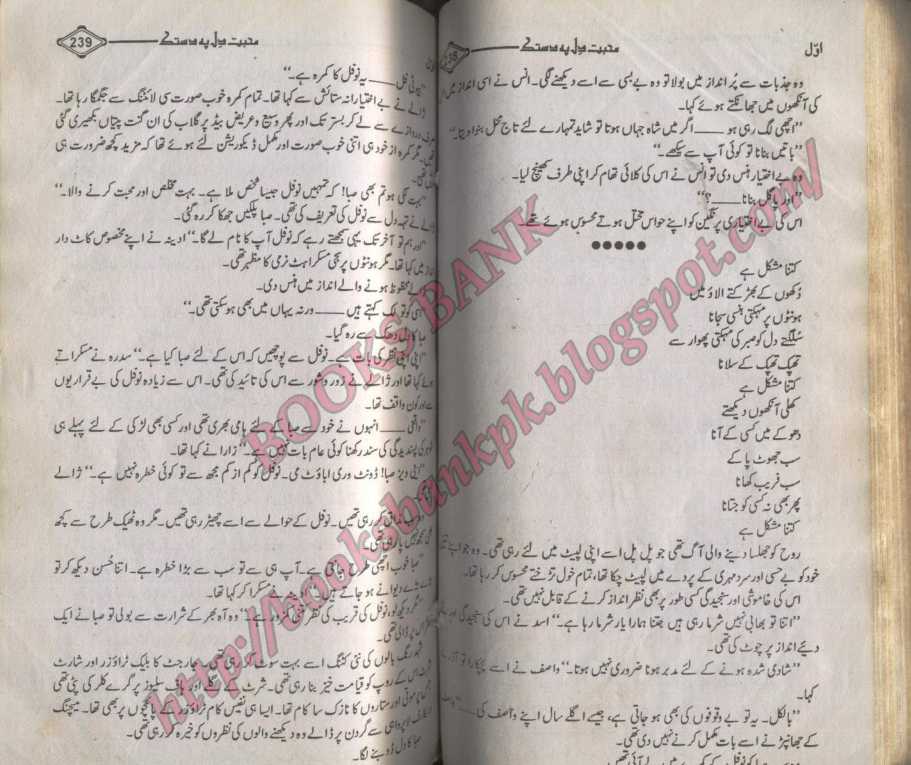 اوّل
محبت دل پہ دستک
وہ جذبات سے پُر انداز میں بولا تو وہ بے بسی سے اسے دیکھنے لگی۔ انس نے اسی انداز میں
کی آنکھوں میں جھانکتے ہوئے کہا۔
”اچھی لگ رہی ہو ــــــ اگر میں شاہ جہاں ہوتا تو شاید تمہارے لئے تاج محل بنوا دیتا۔“
”باتیں بنانا تو کوئی آپ سے سیکھے۔“
وہ بے اختیار ہنس دی تو انس نے اس کی کلائی تھام کر اپنی طرف کھینچ لیا۔
”اور پاگل بنانا ــــــ؟“
اس کی بے اختیاری پر نگین کو اپنے حواس مختل ہوتے محسوس ہوئے تھے۔
●●●●●
کتنا مشکل ہے
دُکھوں کے بھڑکتے الاؤ میں
ہونٹوں پر مہکتی ہنسی سجانا
سُلگتے دل کو صبر کی مہکتی پھوار سے
تھپک تھپک کے سلانا
کتنا مشکل ہے
کھلی آنکھوں دیکھتے
دھوکے میں کسی کے آنا
سب جھوٹ پا کے
سب فریب کھانا
پھر بھی نہ کسی کو جتانا
کتنا مشکل ہے
روح کو جھلسا دینے والی آگ تھی جو پل پل اسے اپنی لپیٹ میں لئے رہی تھی۔ وہ جو اپنے
خود کو بے حسی اور سرد مہری کے پردے میں لپیٹ چکا تھا، تمام خول تڑختے محسوس کر رہا تھا۔
اس کی خاموشی اور سنجیدگی کسی طور پر بھی نظر انداز کرنے کے قابل نہیں تھی۔
”اتنا تو بھابی نہیں شرما رہی ہیں جتنا ہمارا یار شرما رہا ہے۔“ اسد نے اس کی سنجیدگی اور
دیئے انداز پر چوٹ کی تھی۔
”شادی شدہ ہونے کے لئے مدبر ہونا ضروری نہیں ہوتا۔“ واصف نے اسے پچکارا تو
کہا۔
”بالکل۔ یہ تو بے وقوفوں کی بھی ہو جاتی ہے، جیسے اگلے سال اپنے واصف کی ــــــ“
کے جھانپڑ نے اسے بات مکمل کرنے نہیں دی تھی۔
صبا کو نوفل کے کمرے میں لے آئی تھیں۔
محبت دل پہ دستک
239
”بیوٹی فل ــــــ یہ نوفل کا کمرہ ہے۔“
ژالے نے بے اختیارانہ ستائش سے کہا تھا۔ تمام کمرہ خوب صورت سی لائٹنگ سے جگمگا رہا تھا۔
دروازے سے لے کر بستر تک اور پھر وسیع و عریض بیڈ پر گلاب کی ان گنت پتیاں بکھیری گئی
تھیں۔ مگر کمرہ از خود ہی اتنی خوب صورت اور مکمل ڈیکوریشن لئے ہوئے تھا کہ مزید کچھ ضرورت ہی
”بہت لکی ہو تم بھی صبا! کہ تمہیں نوفل جیسا شخص ملا ہے۔ بہت مخلص اور محبت کرنے والا۔“
ژالے نے تہہ دل سے نوفل کی تعریف کی تھی۔ صبا پلکیں جھکا کر رہ گئی۔
”اور ہم تو آخر تک یہی سمجھتے رہے کہ نوفل آپ کا نام لے گا۔“ ادینہ نے اپنے مخصوص کاٹ دار
انداز میں کہا تھا۔ مگر ہونٹوں پر سجی مسکراہٹ نرمی کا مظہر تھی۔
ژالے محظوظ ہونے والے انداز میں ہنس دی۔
”اسی کو تو لک کہتے ہیں ــــــ ورنہ یہاں میں بھی ہو سکتی تھی۔“
صبا کا دل دھک سے رہ گیا۔
”اپنی اپنی نظر کی بات ہے۔ نوفل سے پوچھیں کہ اس کے لئے صبا کیا ہے۔“ سدرہ نے مسکراتے
ہوئے کہا تھا اور ژالے نے زور و شور سے اس کی تائید کی تھی۔ اس سے زیادہ نوفل کی بے قراریوں
سے اور کون واقف تھا۔
”واقعی ــــــ انہوں نے خود سے صبا کے لئے ہامی بھری تھی اور کسی بھی لڑکی کے لئے پہلے ہی
شوہر کی پسندیدگی کی سند رکھنا کوئی عام بات نہیں ہے۔“ زارا نے کہا تھا۔
”اینی ویز صبا! ڈونٹ وری اباؤٹ می۔ نوفل کو کم از کم مجھ سے تو کوئی خطرہ نہیں ہے۔“ ژالے
سب مذاق کر رہی تھیں۔ نوفل کے حوالے سے اسے چھیڑ رہی تھیں۔ مگر وہ ٹھیک طرح سے کچھ
”صبا خوب اچھی طرح جانتی ہے۔ آپ ہی سے تو سب سے بڑا خطرہ ہے۔ اتنا حُسن دیکھ کر تو
بڑے بڑے دیوانے ہو جاتے ہیں۔“ نے مسکرا کر کہا تھا۔
”مگر دیکھ لو، نوفل کی قریب کی نظر کتنی کمزور ہے۔“ وہ آہ بھر کے شرارت سے بولی تو صبا نے ایک
نظر اس پر ڈالی تھی۔
رنگ بالوں کی نئی کٹنگ اسے بہت سوٹ کر رہی تھی۔ جارجٹ کا بلیک ٹراؤزر اور شارٹ
شرٹ اس کے روپ کو قیامت خیز بنا رہی تھی۔ شرٹ کے گلے اور ہاف سلیوز پر گرے کلر کی پٹی تھی
موتی اور ستاروں کا نازک سا کام تھا۔ ایسا ہی نفیس کام ٹراؤزر کے پائنچوں پر بھی تھا۔ میچنگ
لاپرواہی سے گردن پر ڈالے وہ دیکھنے والوں کی نظروں کو خیرہ کر رہی تھی۔
صبا کا دل ڈوبنے لگا۔
BOOKS BANK
http://booksbankpk.blogspot.com/